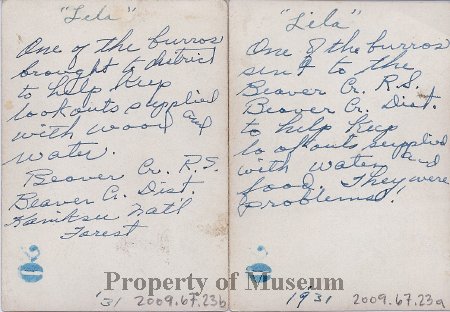 "Lela"
One of the burros
brought to district
to help keep
lookouts supplied
with wood and
water.
Beaver Cr. R.S.
Beaver Cr. Dist.
Kaniksu Nat'l
Forest
'31 2009.67.23b
"Lela"
One of the burros
sent to the
Beaver Cr. R.S.
Beaver Cr. Dist.
to help keep
lookouts supplied
with water and
food. They were
problems!
1931 2009.67.23a
Property of Museum